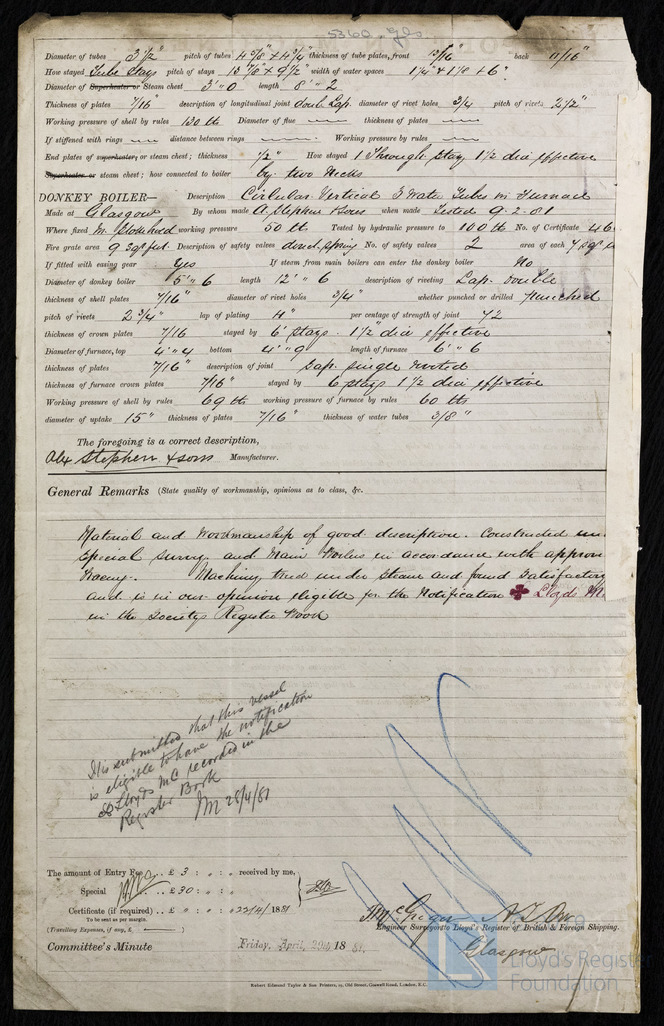 5360 Gls
Diameter of tubes 3 1/2" pitch of tubes 4 5/8" + 4 3/4" thickness of tube plates, front 13/16" back 11/16"
How stayed Tube Stays pitch of stays 13 7/8" + 9 1/2" width of water spaces 1 1/4" + 1 1/8 + 6"
Diameter of Superheater or Steam chest 3' 0" length 8' 2
Thickness of plates 7/16" description of longitudinal joint Doub. Lap. diameter of rivet holes 3/4 pitch of rivets 2 1/2"
Working pressure of shell by rules 130 lb Diameter of flue thickness of plates
If stiffened with rings distance between rings Working pressure by rules
End plates of superheater, or steam chest; thickness 1/2" How stayed 1 Through Stay 1 1/2 dia effective
Superheater or steam chest; how connected to boiler by two Necks
DONKEY BOILER— Description Circular Vertical 3 Water Tubes in Furnace
Made at Glasgow By whom made A. Stephen & Sons when made Tested 9-2-81
Where fixed In Stokehold working pressure 50 lb Tested by hydraulic pressure to 100 lb No. of Certificate 46
Fire grate area 9 Sq. feet Description of safety valves direct spring No. of safety valves 2 area of each 7 sq in
If fitted with easing gear Yes If steam from main boilers can enter the donkey boiler No
Diameter of donkey boiler 5' 6 length 12' 6 description of riveting Lap. Double
thickness of shell plates 7/16" diameter of rivet holes 3/4" whether punched or drilled Punched
pitch of rivets 2 3/4" lap of plating 4" per centage of strength of joint 72
thickness of crown plates 7/16 stayed by 6 stays. 1 1/2" dia effective
Diameter of furnace, top 4' 4 bottom 4' 9 length of furnace 6' 6
thickness of plates 7/16" description of joint Lap. single riveted
thickness of furnace crown plates 7/16" stayed by 6 stays 1 1/2 dia effective
Working pressure of shell by rules 69 lb working pressure of furnace by rules 60 lb
diameter of uptake 15" thickness of plates 7/16" thickness of water tubes 3/8"
The foregoing is a correct description,
Alex Stephen & Sons Manufacturer.
General Remarks (State quality of workmanship, opinions as to class, &c.
Material and Workmanship of good description. Constructed un
Special Survey and Main Boiler in accordance with approv
Tracing. Machinery tried under Steam and found Satisfactory
and is in our opinion eligible for the Notification ✠ Lloyds M
in the Societys Register Book
It is submitted that this vessel
is eligible to have the notification
✠ Lloyds MC recorded in the
Register Book
28/4/81
The amount of Entry Fee .. £ 3 : " : " received by me,
Special .. £ 30 : " : "
Certificate (if required) .. £ " : " : " 22/4/1881
To be sent as per margin.
(Travelling Expenses, if any, £ )
Committee's Minute Friday, April, 29th 1881.
Engineer Surveyors to Lloyd's Register of British & Foreign Shipping.
Glasgow
Robert Edmund Taylor & Son Printers, 19, Old Street, Goswell Road, London, E.C.
Lloyd's Register
Foundation